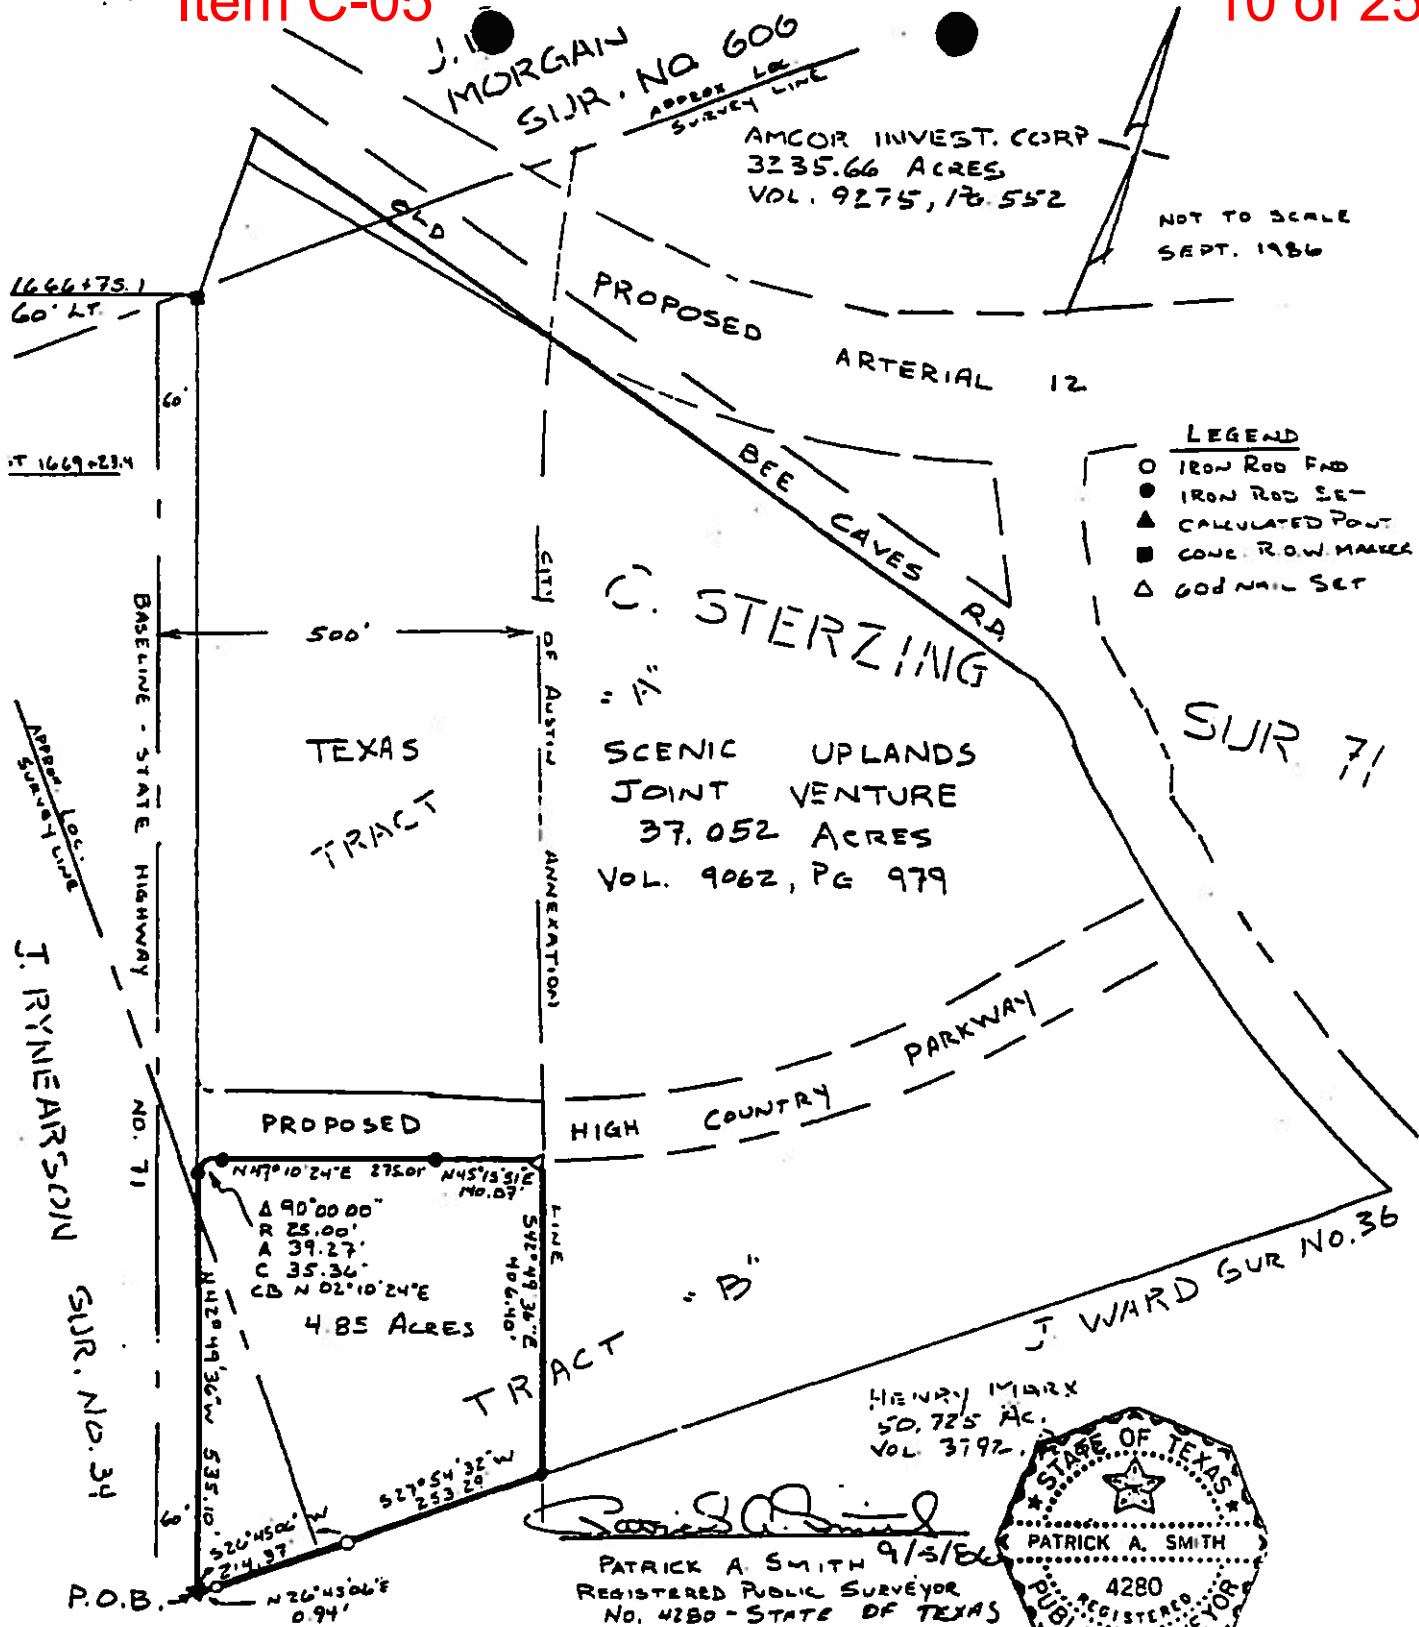 Item C-05
10 of 25
J.
MORGAN
SUR. NO 606
APPROX LOC
SURVEY LINE
AMCOR INVEST. CORP
3235.66 ACRES
VOL. 9275, PG. 552
NOT TO SCALE
SEPT. 1986
OLD
1666+75.1
60' LT.
PROPOSED
ARTERIAL 12
60'
T 1669+23.4
LEGEND
IRON ROD FND
IRON ROD SET
CALCULATED POINT
CONC. R.O.W. MARKER
60d NAIL SET
BEE CAVES RD.
C. STERZING
SUR 71
500'
CITY OF AUSTIN ANNEXATION
LINE
BASELINE - STATE HIGHWAY NO. 71
"A"
TEXAS
TRACT
SCENIC UPLANDS
JOINT VENTURE
37.052 ACRES
VOL. 9062, PG 979
APPROX. LOC.
SURVEY LINE
J. RYNEARSON SUR. NO. 34
PROPOSED HIGH COUNTRY PARKWAY
N47°10'24"E 275.01'
N45°13'51"E
140.07'
Δ 90°00'00"
R 25.00'
A 39.27'
C 35.36'
CB N 02°10'24"E
4.85 ACRES
S42°49'36"E
406.40'
N42°49'36"W 535.10'
"B"
TRACT
J WARD SUR NO. 36
HENRY MARX
50.725 AC.
VOL 3792,
S27°54'32"W
253.29'
S26°45'06"W
214.97
60'
P.O.B.
N26°45'06"E
0.94'
9/5/86
PATRICK A. SMITH
REGISTERED PUBLIC SURVEYOR
NO. 4280 - STATE OF TEXAS
STATE OF TEXAS
PATRICK A. SMITH
4280
REGISTERED